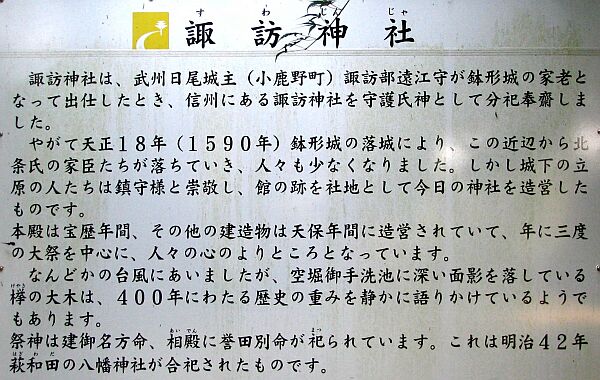 諏訪神社
すわじんじゃ
諏訪神社は、武州日尾城主（小鹿野町）諏訪部遠江守が鉢形城の家老と
なって出仕したとき、信州にある諏訪神社を守護氏神として分祀奉齋しま
した。
やがて天正１８年（１５９０年）鉢形城の落城により、この近辺から北
条氏の家臣たちが落ちていき、人々も少なくなりました。しかし城下の立
原の人たちは鎮守様と崇敬し、館の跡を社地として今日の神社を造営した
ものです。
本殿は宝歴年間、その他の建造物は天保年間に造営されていて、年に三度
の大祭を中心に、人々の心のよりところとなっています。
なんどかの台風にあいましたが、空堀御手洗池に深い面影を落している
欅の大木は、４００年にわたる歴史の重みを静かに語りかけているようで
もあります。
祭神は建御名方命、相殿に誉田別命が祀られています。これは明治４２年
萩和田の八幡神社が合祀されたものです。